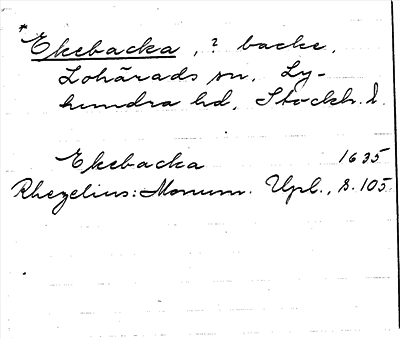 *
Ekebacka, ? backe,
Lohärads sn, Ly-
hundra hd, Stockh. l.
Ekebacka 1635
Rhezelius: Monum. Upl., s. 105.